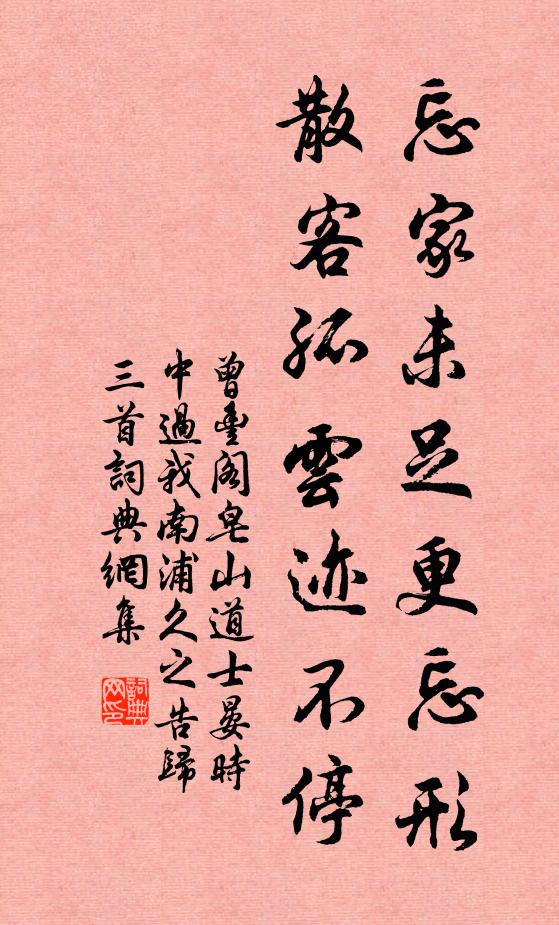 忘家未足更忘形
散客孤雲迹不停
曾豐閣皂山道士晏時
中過我南浦久之告歸
三首詞典網集
詞典網印